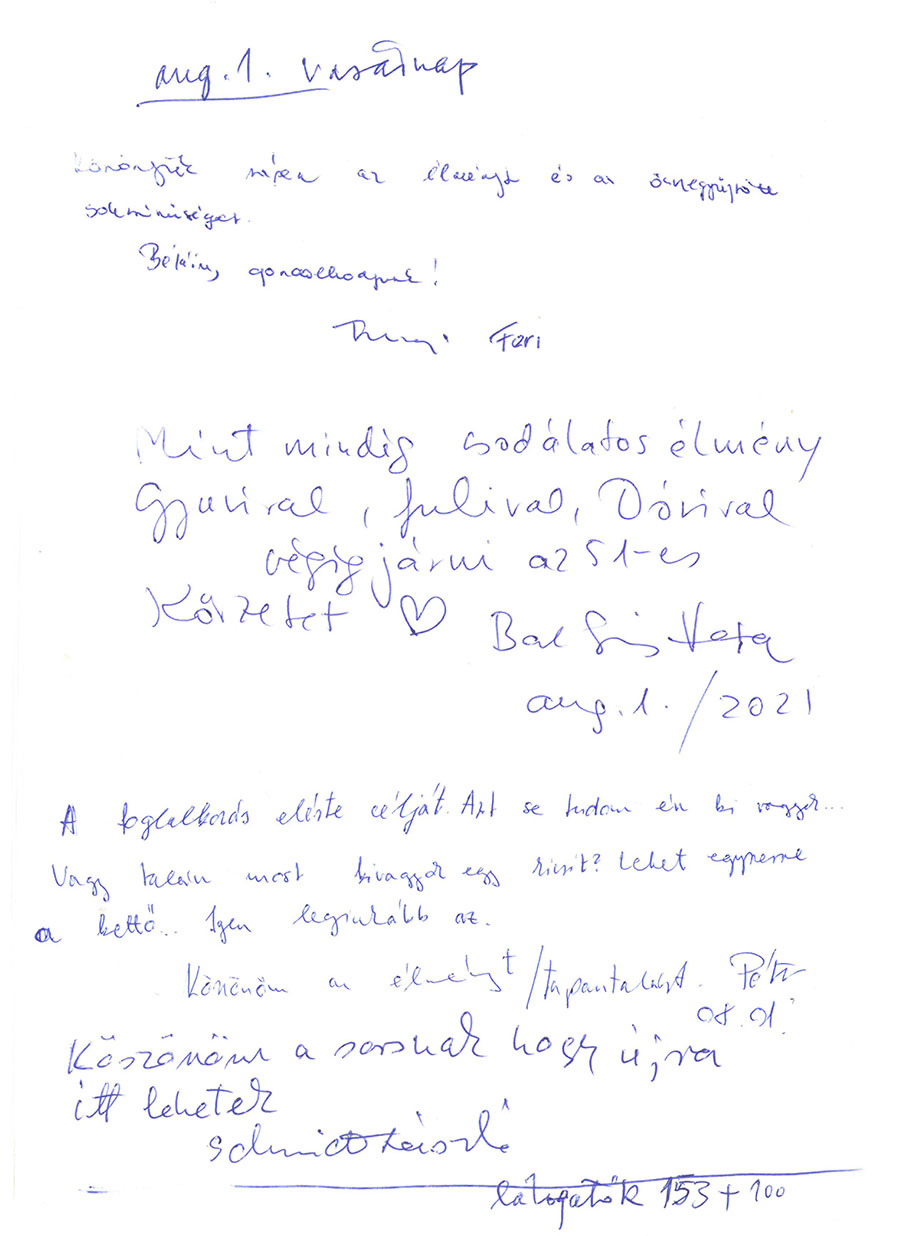 aug. 1. vasárnap
Köszönjük szépen az élményt és az összegyűjtött
sokszínűséget.
Békán, gondolkodjunk!
Feri
Mint mindig csodálatos élmény
Gyurival, Julival, Dórival
végigjárni az 51-es
Körzetet ♡
Vera
aug. 1. / 2021
A foglalkozás elérte célját. Azt se tudom én ki vagyok...
Vagy talán most kivagyok egy kicsit? Lehet egyszerre
a kettő.. Igen leginkább az.
Köszönöm az élményt/tapasztalást. Péter
08.01.
Köszönöm a sorsnak hogy újra
itt lehetek
Schmidt László
látogatók 153 + 100